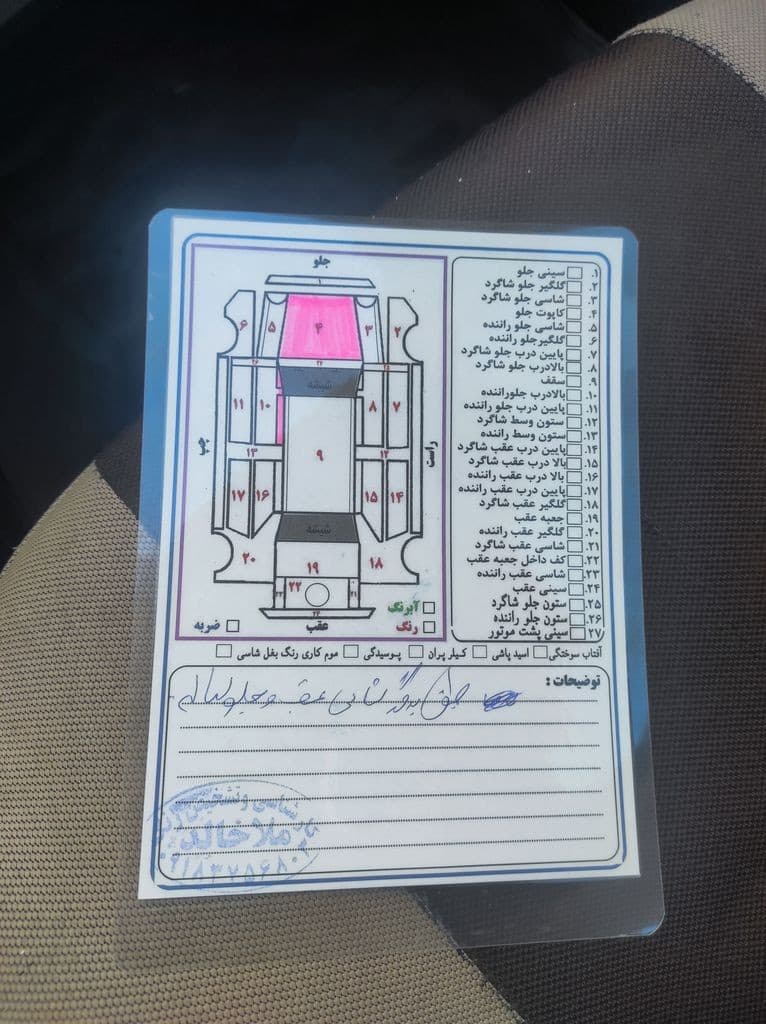 جلو
۱
۲
۳
۴
۵
۶
۲۶
۲۷
۲۵
شیشه
۷
۸
۹
۱۰
۱۱
چپ
راست
۱۲
۱۳
۱۴
۱۵
۱۶
۱۷
شیشه
۱۸
۱۹
۲۰
۲۱
۲۲
۲۳
۲۴
عقب
آبرنگ
رنگ
ضربه
۱. سینی جلو
۲. گلگیر جلو شاگرد
۳. شاسی جلو شاگرد
۴. کاپوت جلو
۵. شاسی جلو راننده
۶. گلگیرجلو راننده
۷. پایین درب جلو شاگرد
۸. بالادرب جلو شاگرد
۹. سقف
۱۰. بالادرب جلوراننده
۱۱. پایین درب جلو راننده
۱۲. ستون وسط شاگرد
۱۳. ستون وسط راننده
۱۴. پایین درب عقب شاگرد
۱۵. بالا درب عقب شاگرد
۱۶. بالا درب عقب راننده
۱۷. پایین درب عقب راننده
۱۸. گلگیر عقب شاگرد
۱۹. جعبه عقب
۲۰. گلگیر عقب راننده
۲۱. شاسی عقب شاگرد
۲۲. کف داخل جعبه عقب
۲۳. شاسی عقب راننده
۲۴. سینی عقب
۲۵. ستون جلو شاگرد
۲۶. ستون جلو راننده
۲۷. سینی پشت موتور
آفتاب سوختگی اسید پاشی کیلر پران پوسیدگی موم کاری رنگ بغل شاسی
توضیحات :
شاسی عقب و جلو سالم
کارشناسی و تشخیص رنگ
ملاخالد